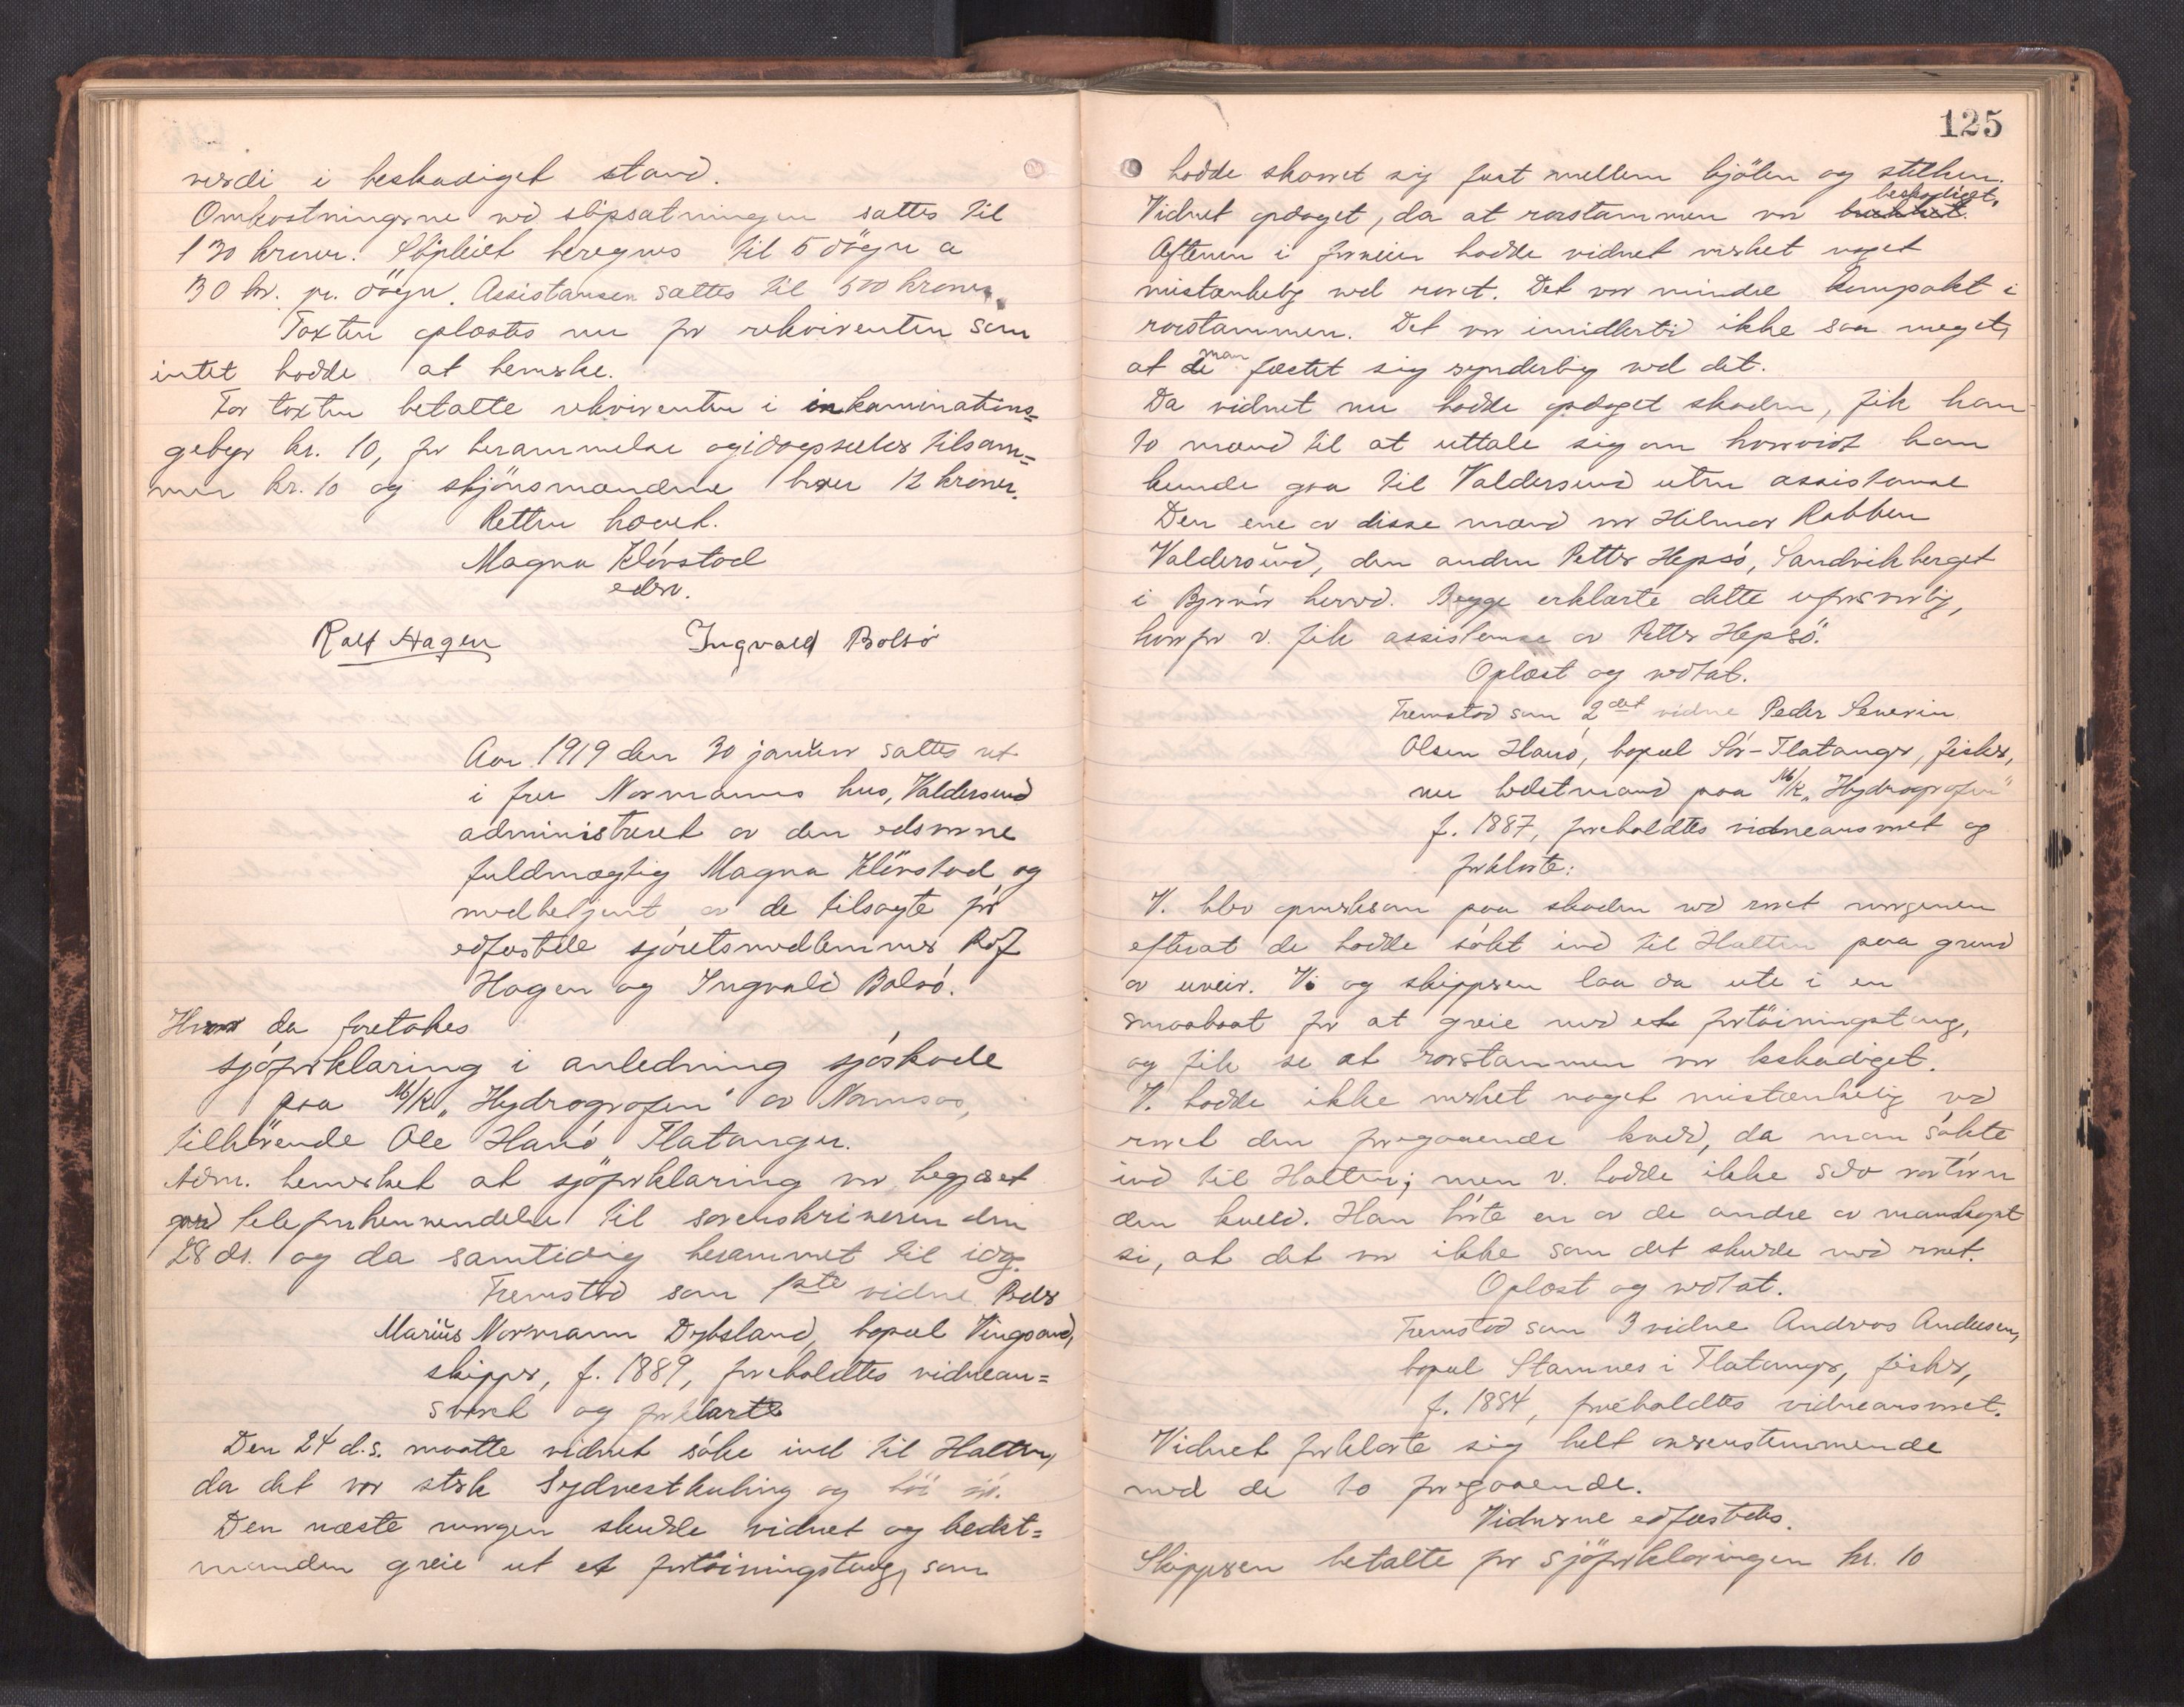 verdi i beskadiget stand.
Omkostningerne ved slipsætningen sattes til
130 kroner. Slipleiet beregnes til 5 døgn a
30 kr. pr. døgn. Assistansen sattes til 500 kroner.
Taxten oplæstes nu for rekvirenten som
intet hadde at bemerke.
For taxten betalte rekvirenten i inkaminations=
gebyr kr. 10, for berammelse og idagsættelse tilsam=
men kr. 10 og skjönsmændene hver 12 kroner.
Retten hævet.
Magna Klövstad
edsv.
Rolf Hagen Ingvald Bolsö
Aar 1919 den 30 januar sattes ret
i fru Normanns hus, Valdersund
administreret av den edsvorne
fuldmægtig Magna Klövstad og
medbetjent av de tilsagte før
edfæstede sjöretsmedlemmer Rolf
Hagen og Ingvald Bolsö.
Hvor da foretokes
sjöforklaring i anledning sjöskade
paa M/K „Hydrografen" av Namsos,
tilhörende Ole Hanö Flatanger.
Adm. bemerket at sjöforklaring var begjæret
ved telefonhenvendelse til sorenskriveren den
28 ds. og da samtidig berammet til idag.
Fremstod som 1ste vidne Peder
Marius Normann Dybsland, bopæl Vingsand,
skipper, f. 1889, foreholdtes vidnean=
svaret og forklarte
Den 24 d.s. maatte vidnet söke ind til Halten,
da det var sterk Sydvestkuling og höi sjö.
Den næste morgen skulde vidnet og bedst=
manden greie ut et fortöiningstaug, som
125
hadde skaaret sig fast mellem kjölen og stilken.
Vidnet opdaget, da at rorstammen var beskadiget.
Aftenen i forveien hadde vidnet merket noget
mistænkelig ved roret. Det var mindre kompakt i
rorstammen. Det var imidlertid ikke saa meget,
at man fæstet sig synderlig ved det.
Da vidnet nu hadde opdaget skaden, fik han
to mænd til at uttale sig om hvorvidt han
kunde gaa til Valdersund uten assistanse
Den ene av disse mænd var Hilmar Rabben
Valdersund, den anden Petter Hepsö, Sandvikberget
i Bjørnör herred. Begge erklærte dette uforsvarlig,
hvorfor v. fik assistanse av Petter Hepsö.
Oplæst og vedtat.
Fremstod som 2det vidne Peder Severin
Olsen Hanö, bopæl Sör-Flatanger, fisker,
nu bedstmand paa M/K „Hydrografen"
f. 1887, foreholdtes vidneansvaret og
forklarte:
V. blev opmerksom paa skaden ved roret morgenen
efterat de hadde sökt ind til Halten paa grund
av uveir. V. og skipperen laa da ute i en
smaabaat for at greie med et fortöiningstaug,
og fik se at rorstammen var beskadiget.
V. hadde ikke merket noget mistænkelig ved
roret den foregaaende kveld, da man sökte
ind til Halten; men v. hadde ikke selv rortörn
den kveld. Han hörte en av de andre av mandskapet
si, at det var ikke som det skulde med roret.
Oplæst og vedtat.
Fremstod som 3 vidne Andreas Andersen,
bopæl Stamnes i Flatanger, fisker,
f. 1884, foreholdtes vidneansvaret.
Vidnet forklarte sig helt overenstemmende
med de to foregaaende.
Vidnerne edfæstedes.
Skipperen betalte for sjöforklaringen kr. 10